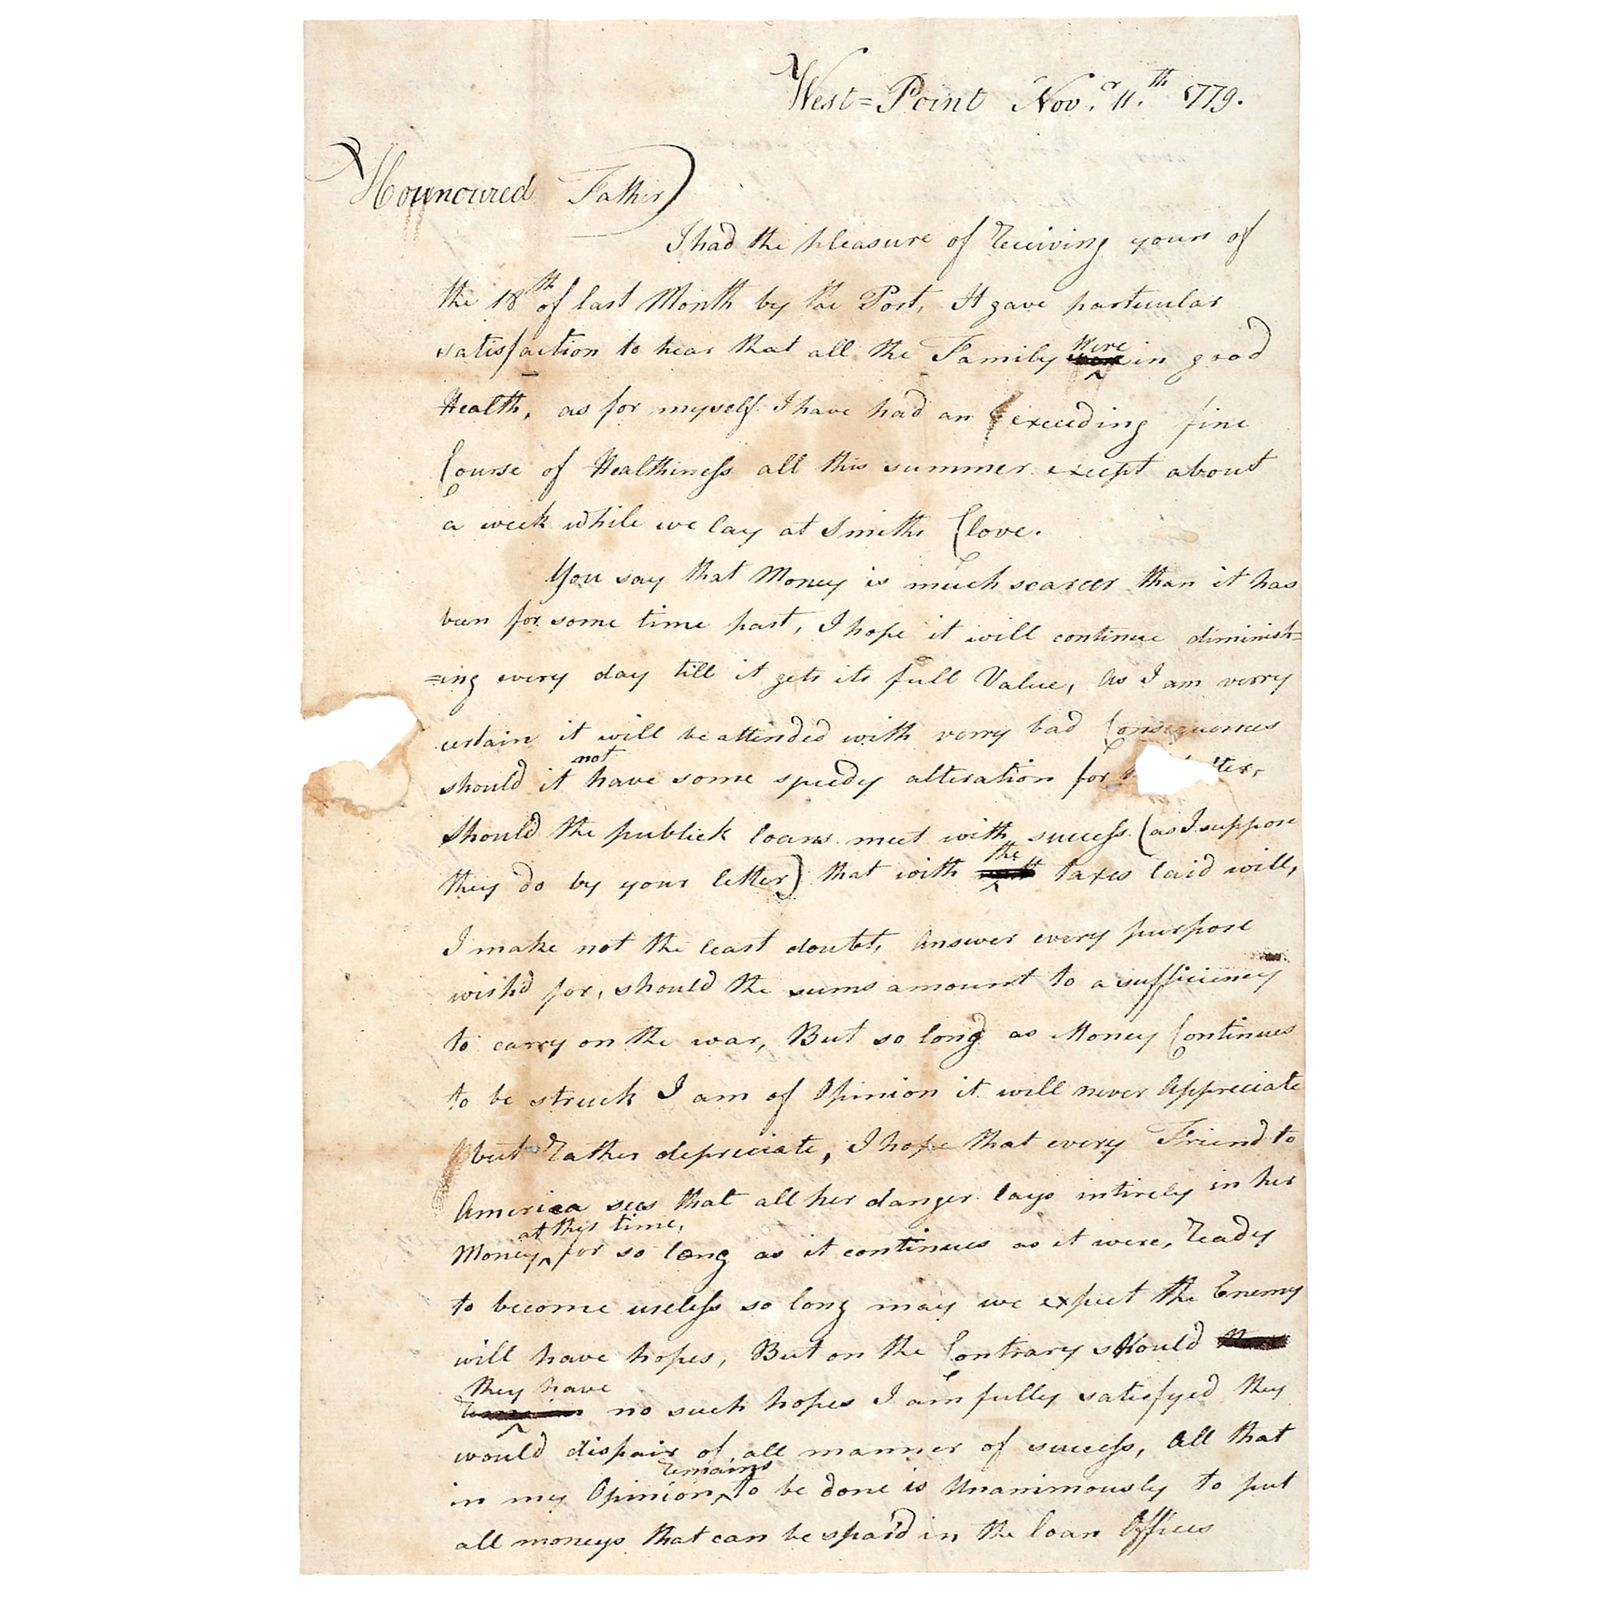 West=Point Novr. 11.th 1779.
Hounoured Father
I had the pleasure of Receiving yours of
the 18th of last Month by the Post, It gave particular
satisfaction to hear that all the Family were in good
Health, as for myself I have had an exceeding fine
Course of Healthiness all this summer except about
a week while we lay at Smiths Clove.
You say that Money is much scarcer than it has
been for some time past, I hope it will continue diminish=
=ing every day till it gets its full Value, As I am verry
certain it will be attended with verry bad Consequences
should it not have some speedy alteration for
Should the publick loans meet with success (as I suppose
they do by your letter) that with the taxes laid will,
I make not the least doubt, Answer every purpose
wish'd for, should the sums amount to a sufficiency
to carry on the war, But so long as Money Continues
to be struck I am of Opinion it will never Appreciate
but Rather depreciate, I hope that every Friend to
America sees that all her danger lays intirely in her
Money at this time, for so long as it continues as it were, Ready
to become useless so long may we expect the Enemy
will have hopes, But on the Contrary should
they have no such hopes I am fully satisfyed they
would dispair of all manner of success, All that
in my Opinion remains to be done is Unanimously to put
all moneys that can be spar'd in the loan Offices